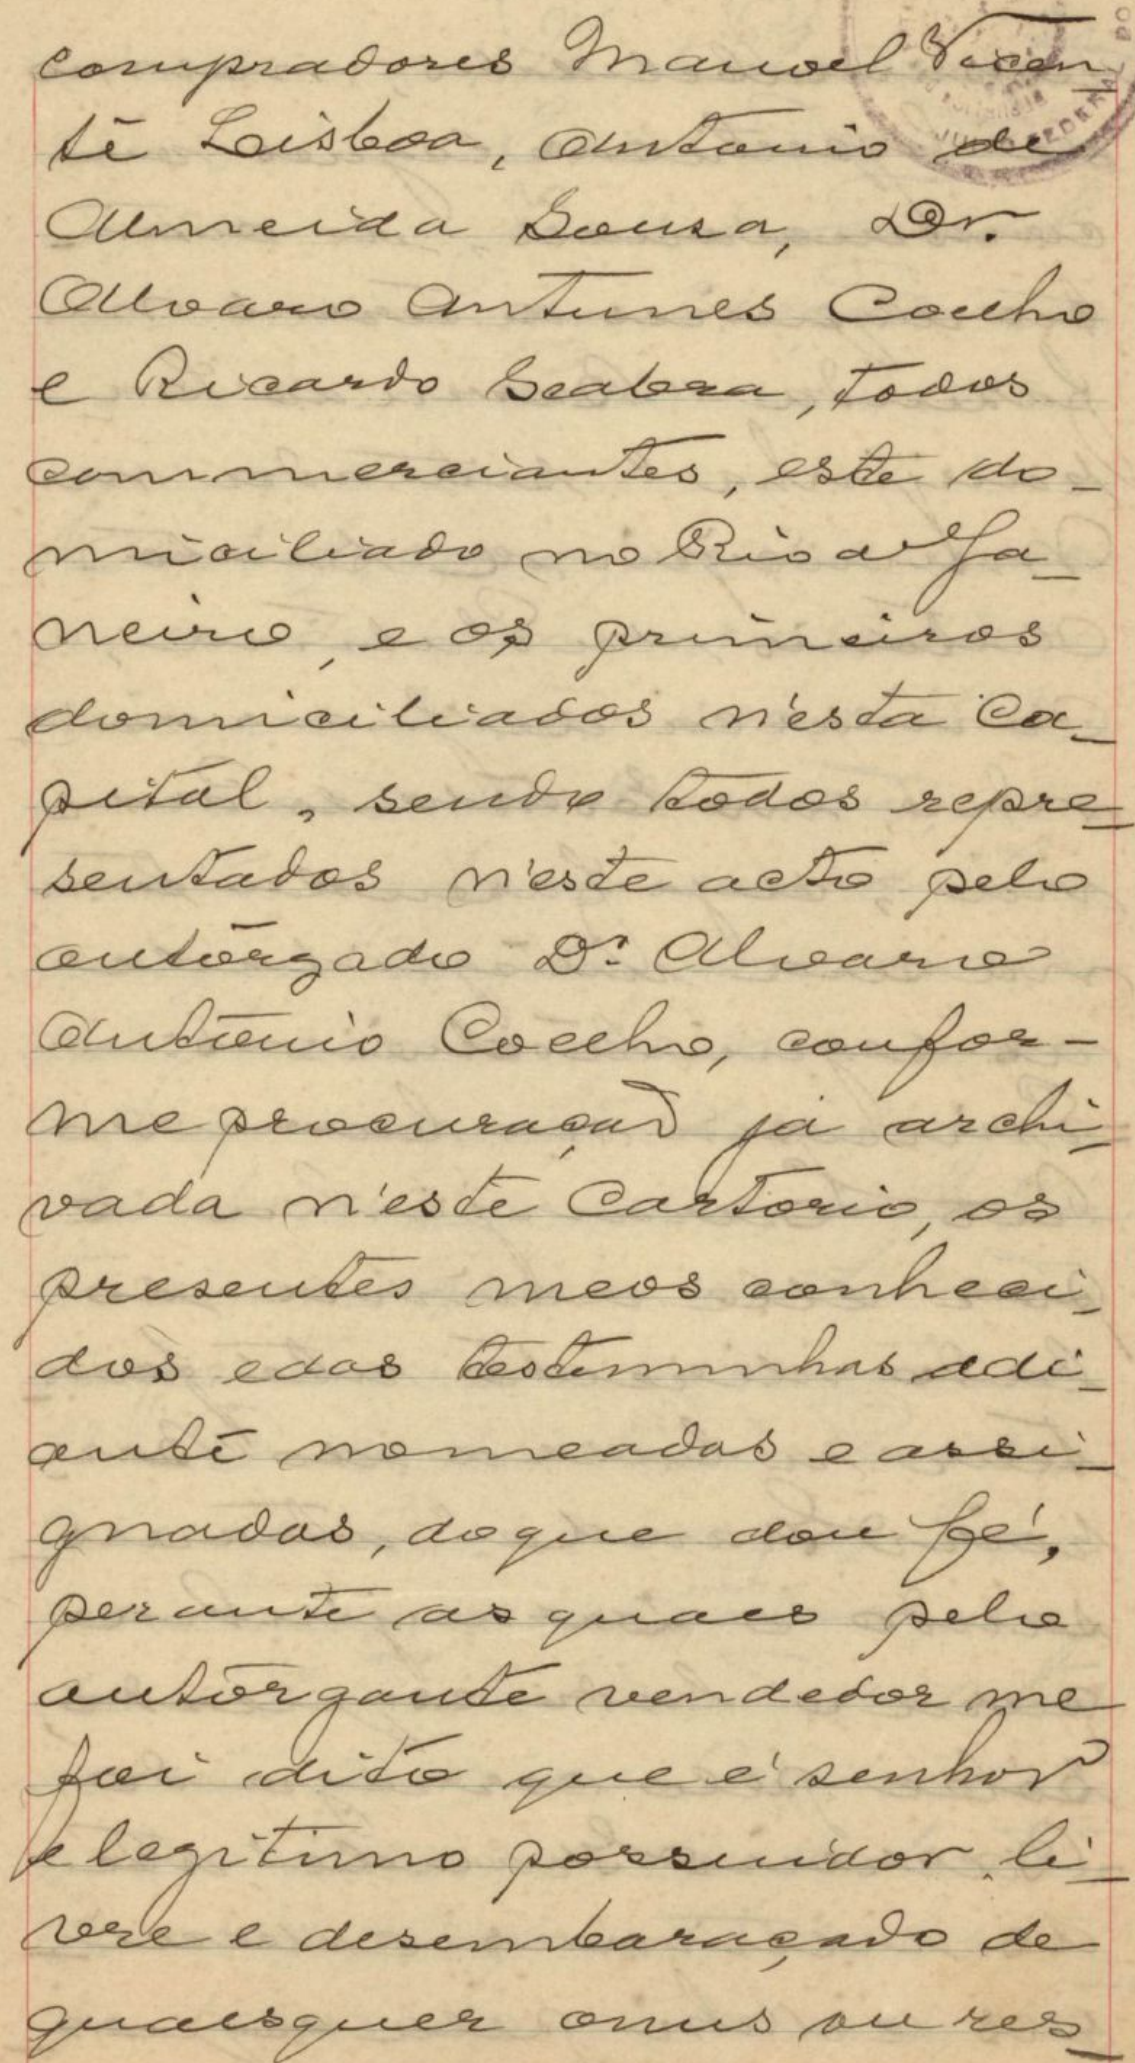 compradores Manoel Vicen_
te Lisboa, Antonio de
Almeida Souza, Dr.
Alvaro Antunes Coelho
e Ricardo Seabra, todos
commerciantes, este do-
miciliado no Rio d Ja_
neiro, e os primeiros
domiciliados n'esta Ca_
pital, sendo todos repre_
sentados n'este acto pelo
outorgado Dr. Alvaro
Antonio Coelho, confor-
me procuração já archi_
vada n'este Cartorio, os
presentes meos conheci_
dos e das testemunhas adi_
ante nomeadas e assi_
gnadas, do que dou fé,
perante as quaes pelo
outorgante vendedor me
foi dito que é senhor
e legitimo possuidor, li_
vre e desembaraçado de
quaesquer onus ou res_